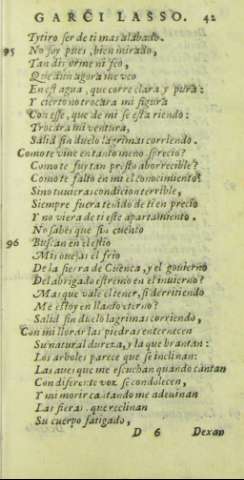 GARCI LASSO. 42
Tytiro ser de ti mas alabado.
95 No soy pues, bien mirado,
Tan disforme ni feo,
Que aun agora me veo
En esta agua, que corre clara y pura:
Y cierto no trocara mi figura
Con esse, que de mi se esta riendo:
Trocara mi ventura,
Salid sin duelo lagrimas corriendo.
Como te vine en tanto meno sprecio?
Como te fuy tan presto aborrecible?
Como te falto en mi el conocimiento?
Sino tuuieras condicion terrible,
Siempre fuera tenido de ti en precio
Y no viera de ti este apartamiento.
No sabes que sin cuento
96 Buscan en el estio
Mis ouejas el frio
De la sierra de Cuenca, y el gouierno
Del abrigado estremo en el inuierno?
Mas que vale el tener, si derritiendo
Me estoy en llanto eterno?
Salid sin duelo lagrimas corriendo,
Con mi llorar las piedras enternecen
Su natural dureza, y la que brantan:
Los arboles parece que se inclinan:
Las aues que me escuchan quando cantan
Con diferente voz se condolecen,
Y mi morir cantando me adeuinan
Las fieras, que reclinan
Su cuerpo fatigado,
D 6 Dexan